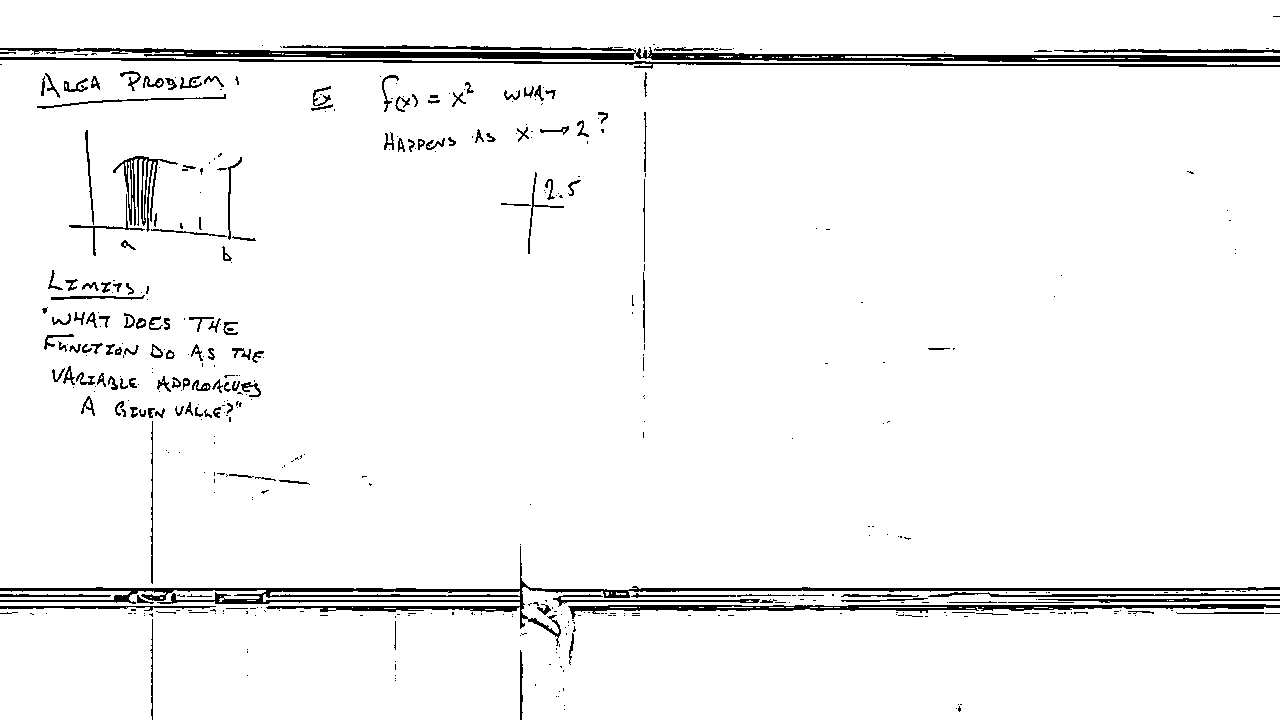 AREA PROBLEM:
a
b
LIMITS:
"WHAT DOES THE
FUNCTION DO AS THE
VARIABLE APPROACHES
A GIVEN VALUE?"
Ex f(x) = x² WHAT
HAPPENS AS x → 2?
2.5